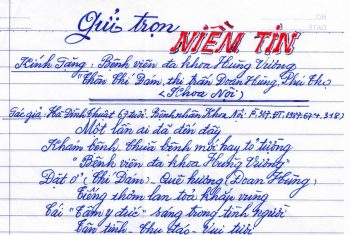 Gửi trọn NIỀM TIN
Kính Tặng: Bệnh viện đa khoa Hùng Vương
Thôn Thí Đám, thị trấn Đoan Hùng, Phú Thọ
(Khoa Nội)
Tác giả: Hà Đình Thuất 67 tuổi. Bệnh nhân Khoa Nội:
Một lần ai đã đến đây
Khám bệnh. Chữa bệnh mới hay tỏ tường
"Bệnh viện đa khoa Hùng Vương"
Đặt ở (Thí Đám) - Quê hương (Đoan Hùng)
Tiếng thơm lan tỏa khắp vùng
Cái "Tâm y đức" sáng trong tình người
Tận tình - Chu đáo - Vui tươi